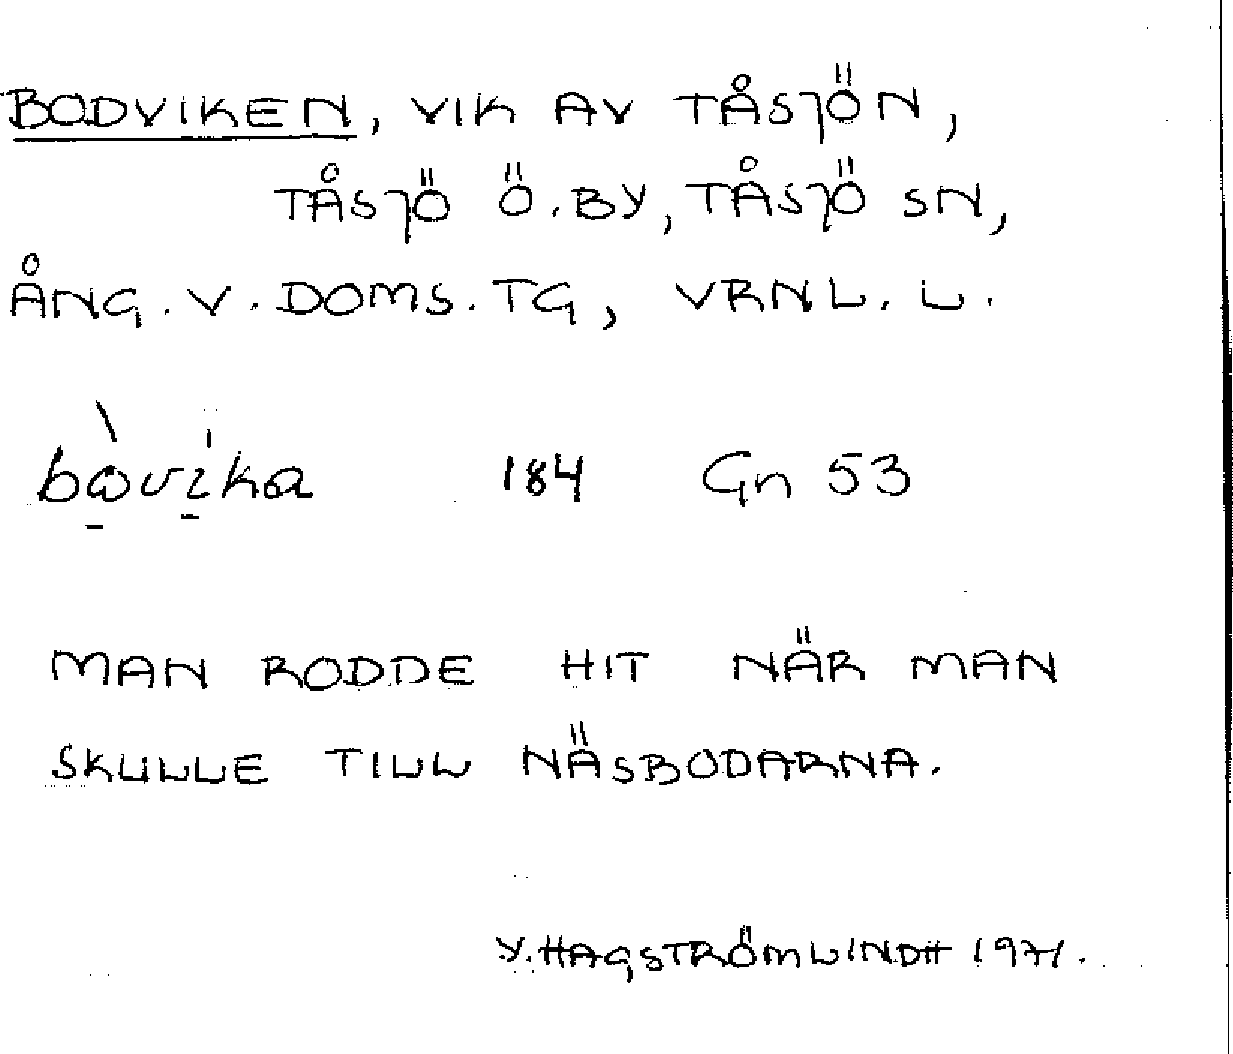 BODVIKEN, VIK AV TÅSJÖN,
TÅSJÖ Ö.BY, TÅSJÖ SN,
ÅNG.V.DOMS.TG, VRNL.L.
bòvika 184 Gn 53
MAN RODDE HIT NÄR MAN
SKULLE TILL NÄSBODARNA.
Y.HAGSTRÖMLINDH 1971.